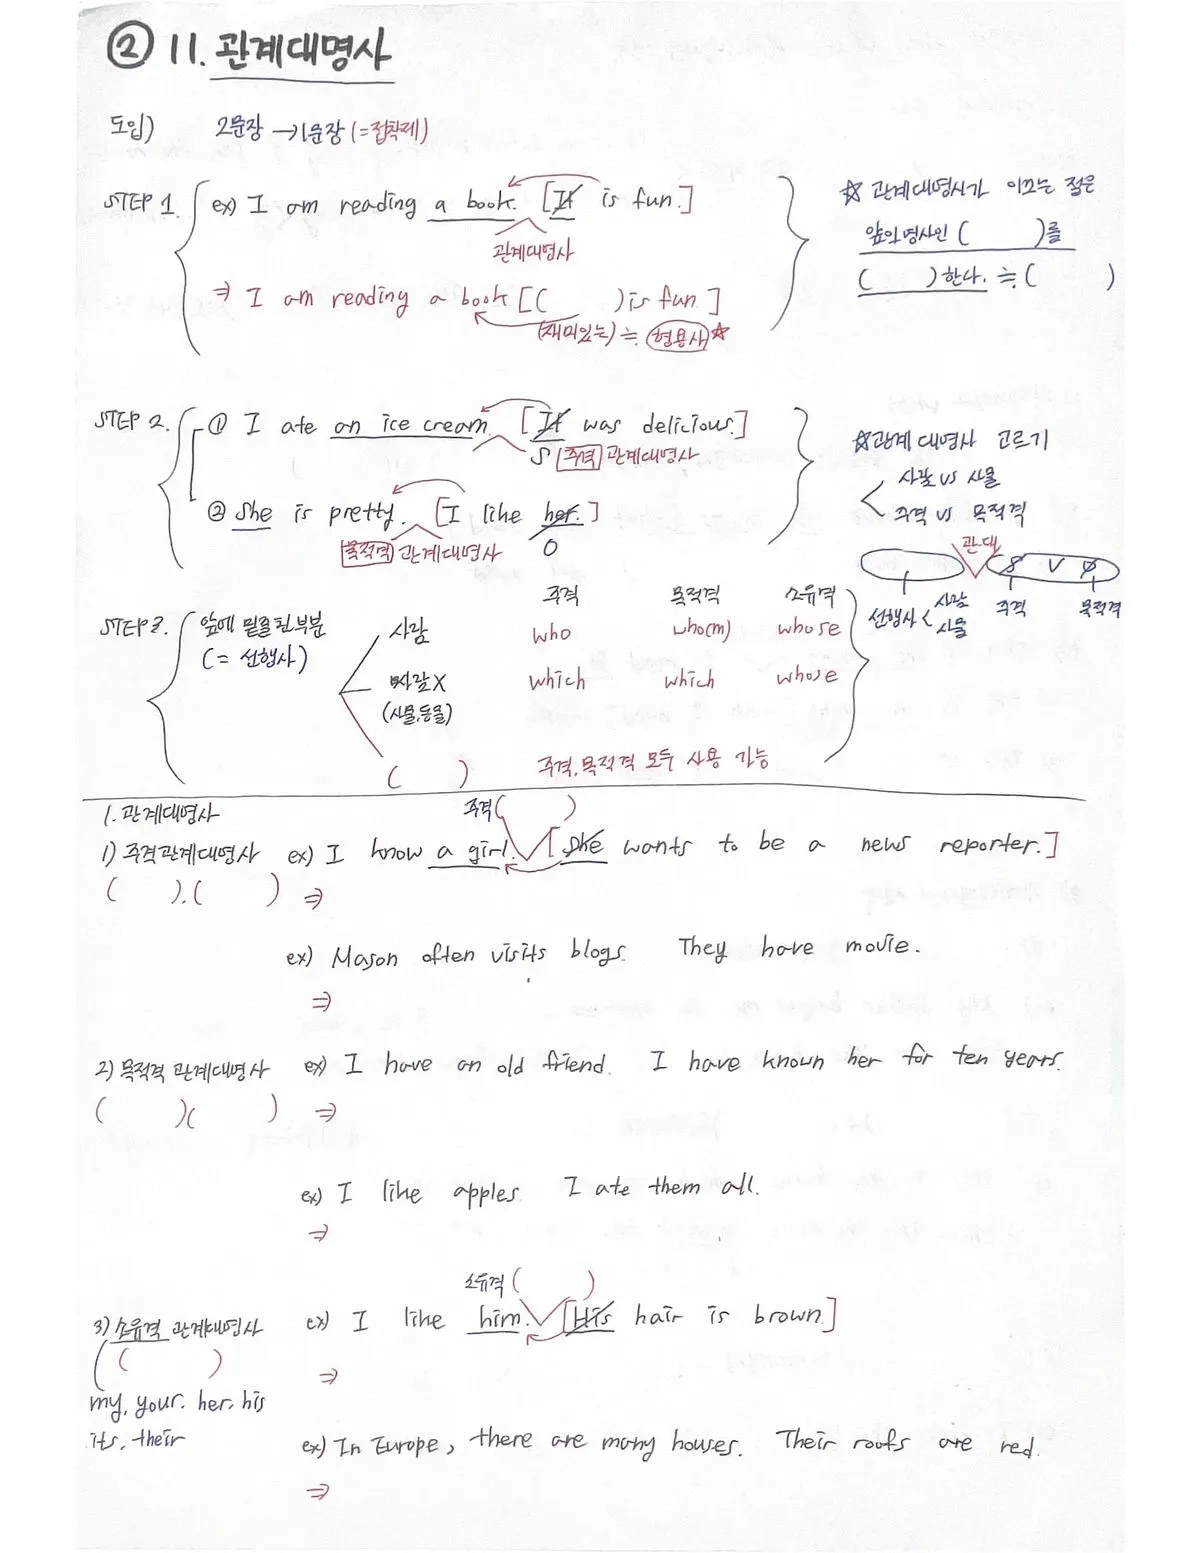 ② 11. 관계대명사
도입) 2문장 → 1문장 (=접착제)
STEP 1. ex) I am reading a book. [It is fun.]
관계대명사
⇒ I am reading a book [( ) is fun.]
(재미있는) ≒ 형용사 ☆
☆ 관계대명사가 이끄는 절은
앞의 명사인 ( )를
( ) 한다. ≒ ( )
STEP 2. ① I ate an ice cream. [It was delicious.]
S 주격 관계대명사
② She is pretty. [I like her.]
목적격 관계대명사 O
☆ 관계대명사 고르기
사람 vs 사물
주격 vs 목적격
관대
S V O
선행사 < 사람 사물 주격 목적격
STEP 3. 앞에 밑줄 친 부분
(= 선행사)
주격 목적격 소유격
사람 who who(m) whose
사람X which which whose
(사물, 동물)
( ) 주격, 목적격 모두 사용 가능
1. 관계대명사
주격 ( )
1) 주격관계대명사 ex) I know a girl. [She wants to be a news reporter.]
( ), ( ) ⇒
ex) Mason often visits blogs. They have movie.
⇒
2) 목적격 관계대명사 ex) I have an old friend. I have known her for ten years.
( )( ) ⇒
ex) I like apples. I ate them all.
⇒
소유격 ( )
3) 소유격 관계대명사 ex) I like him. [His hair is brown]
( ) ⇒
my, your, her, his
its, their
ex) In Europe, there are many houses. Their roofs are red.
⇒